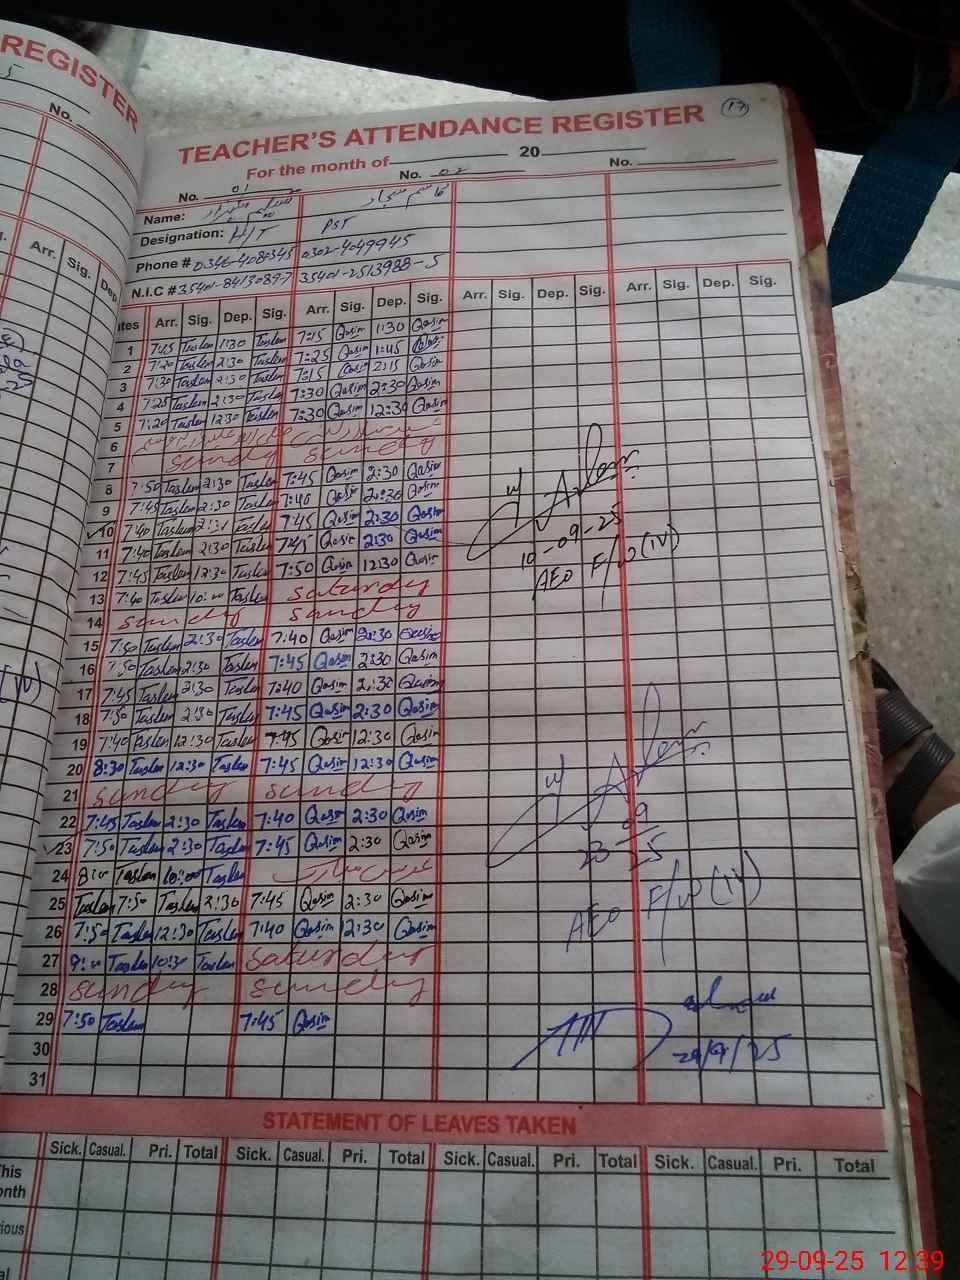 REGISTER
5
No.
Arr. Sig. Dep.
17
TEACHER'S ATTENDANCE REGISTER
For the month of 20
No. 01 No. 02 No.
Name:
Designation: H/T PST
Phone # 0302-4049945
N.I.C # 35401-8413089-7 35401-2513988-5
Dates Arr. Sig. Dep. Sig. Arr. Sig. Dep. Sig. Arr. Sig. Dep. Sig. Arr. Sig. Dep. Sig.
1 7:25 Taslem 1:30 Taslem 7:15 Qasim 1:30 Qasim
2 7:20 Taslem 2:30 Taslem 7:25 Qasim 1:45
3 7:30 Taslem 2:30 Taslem 7:15 Qasim 2:15 Qasim
4 7:25 Taslem 2:30 Taslem 7:30 Qasim 2:30 Qasim
5 7:20 Taslem 12:30 Taslem 7:30 Qasim 12:30 Qasim
6
7 Sunday Sunday
8 7:50 Taslem 2:30 Taslem 7:45 Qasim 2:30 Qasim
9 7:45 Taslem 2:30 Taslem 7:40 Qasim 2:30 Qasim
10 7:40 Taslem 2:30 Taslem 7:45 Qasim 2:30 Qasim
11 7:40 Taslem 2:30 Taslem 7:45 Qasim 2:30 Qasim
12 7:45 Taslem 12:30 Taslem 7:50 Qasim 12:30 Qasim
13 7:40 Taslem 10:00 Taslem Saturday
14 Sunday Sunday
10-09-25
AEO F/W (IV)
15 7:50 Taslem 2:30 Taslem 7:40 Qasim 2:30 Qasim
16 7:50 Taslem 2:30 Taslem 7:45 Qasim 2:30 Qasim
17 7:45 Taslem 2:30 Taslem 7:40 Qasim 2:30 Qasim
18 7:50 Taslem 2:30 Taslem 7:45 Qasim 2:30 Qasim
19 7:40 Taslem 12:30 Taslem 7:45 Qasim 12:30 Qasim
20 8:30 Taslem 12:30 Taslem 7:45 Qasim 12:30 Qasim
21 Sunday Sunday
22 7:45 Taslem 2:30 Taslem 7:40 Qasim 2:30 Qasim
23 7:50 Taslem 2:30 Taslem 7:45 Qasim 2:30 Qasim
24 8:00 Taslem 10:00 Taslem
23-09-25
AEO F/W (IV)
25 Taslem 7:50 Taslem 2:30 7:45 Qasim 2:30 Qasim
26 7:50 Taslem 12:30 Taslem 7:40 Qasim 12:30 Qasim
27 9:00 Taslem 10:30 Taslem Saturday
28 Sunday Sunday
29 7:50 Taslem 7:45 Qasim
29/9/25
30
31
STATEMENT OF LEAVES TAKEN
Sick. Casual. Pri. Total Sick. Casual. Pri. Total Sick. Casual. Pri. Total Sick. Casual. Pri. Total
This
29-09-25 12:39